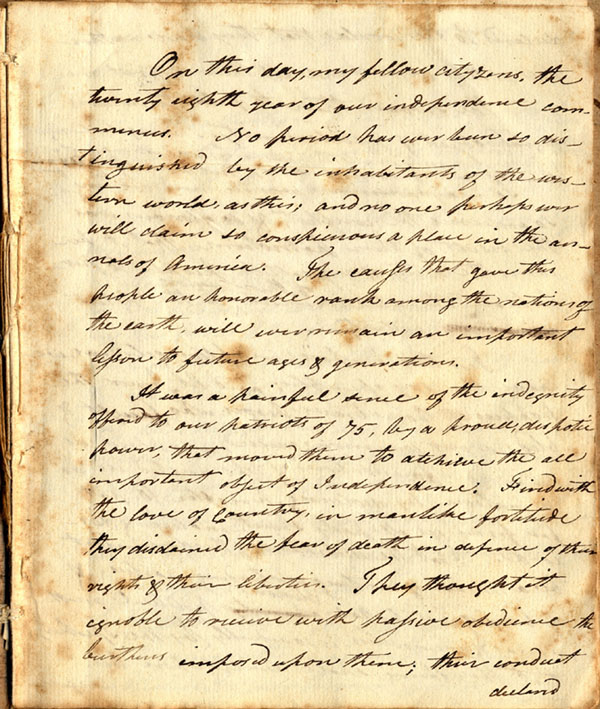 On this day, my fellow cityzens, the
twenty eighth year of our independence com-
mences. No period has ever been so dis-
tinguished by the inhabitants of the wes-
tern world, as this; and no one perhaps ever
will claim so conspicuous a place in the an-
nals of America. The causes that gave this
people an honorable rank among the nations of
the earth, will ever remain an important
lesson to future ages & generations.
It was a painful sense of the indegnity
offered to our patriots of 75, by a proud, despotic
power, that moved them to atchieve the all
important object of Independence. Fired with
the love of Country, in manlike fortitude
they disdained the fear of death in defence of their
rights & their liberties. They thought it
ignoble to receive with passive obedience the
burthens imposed upon them; their conduct
declared